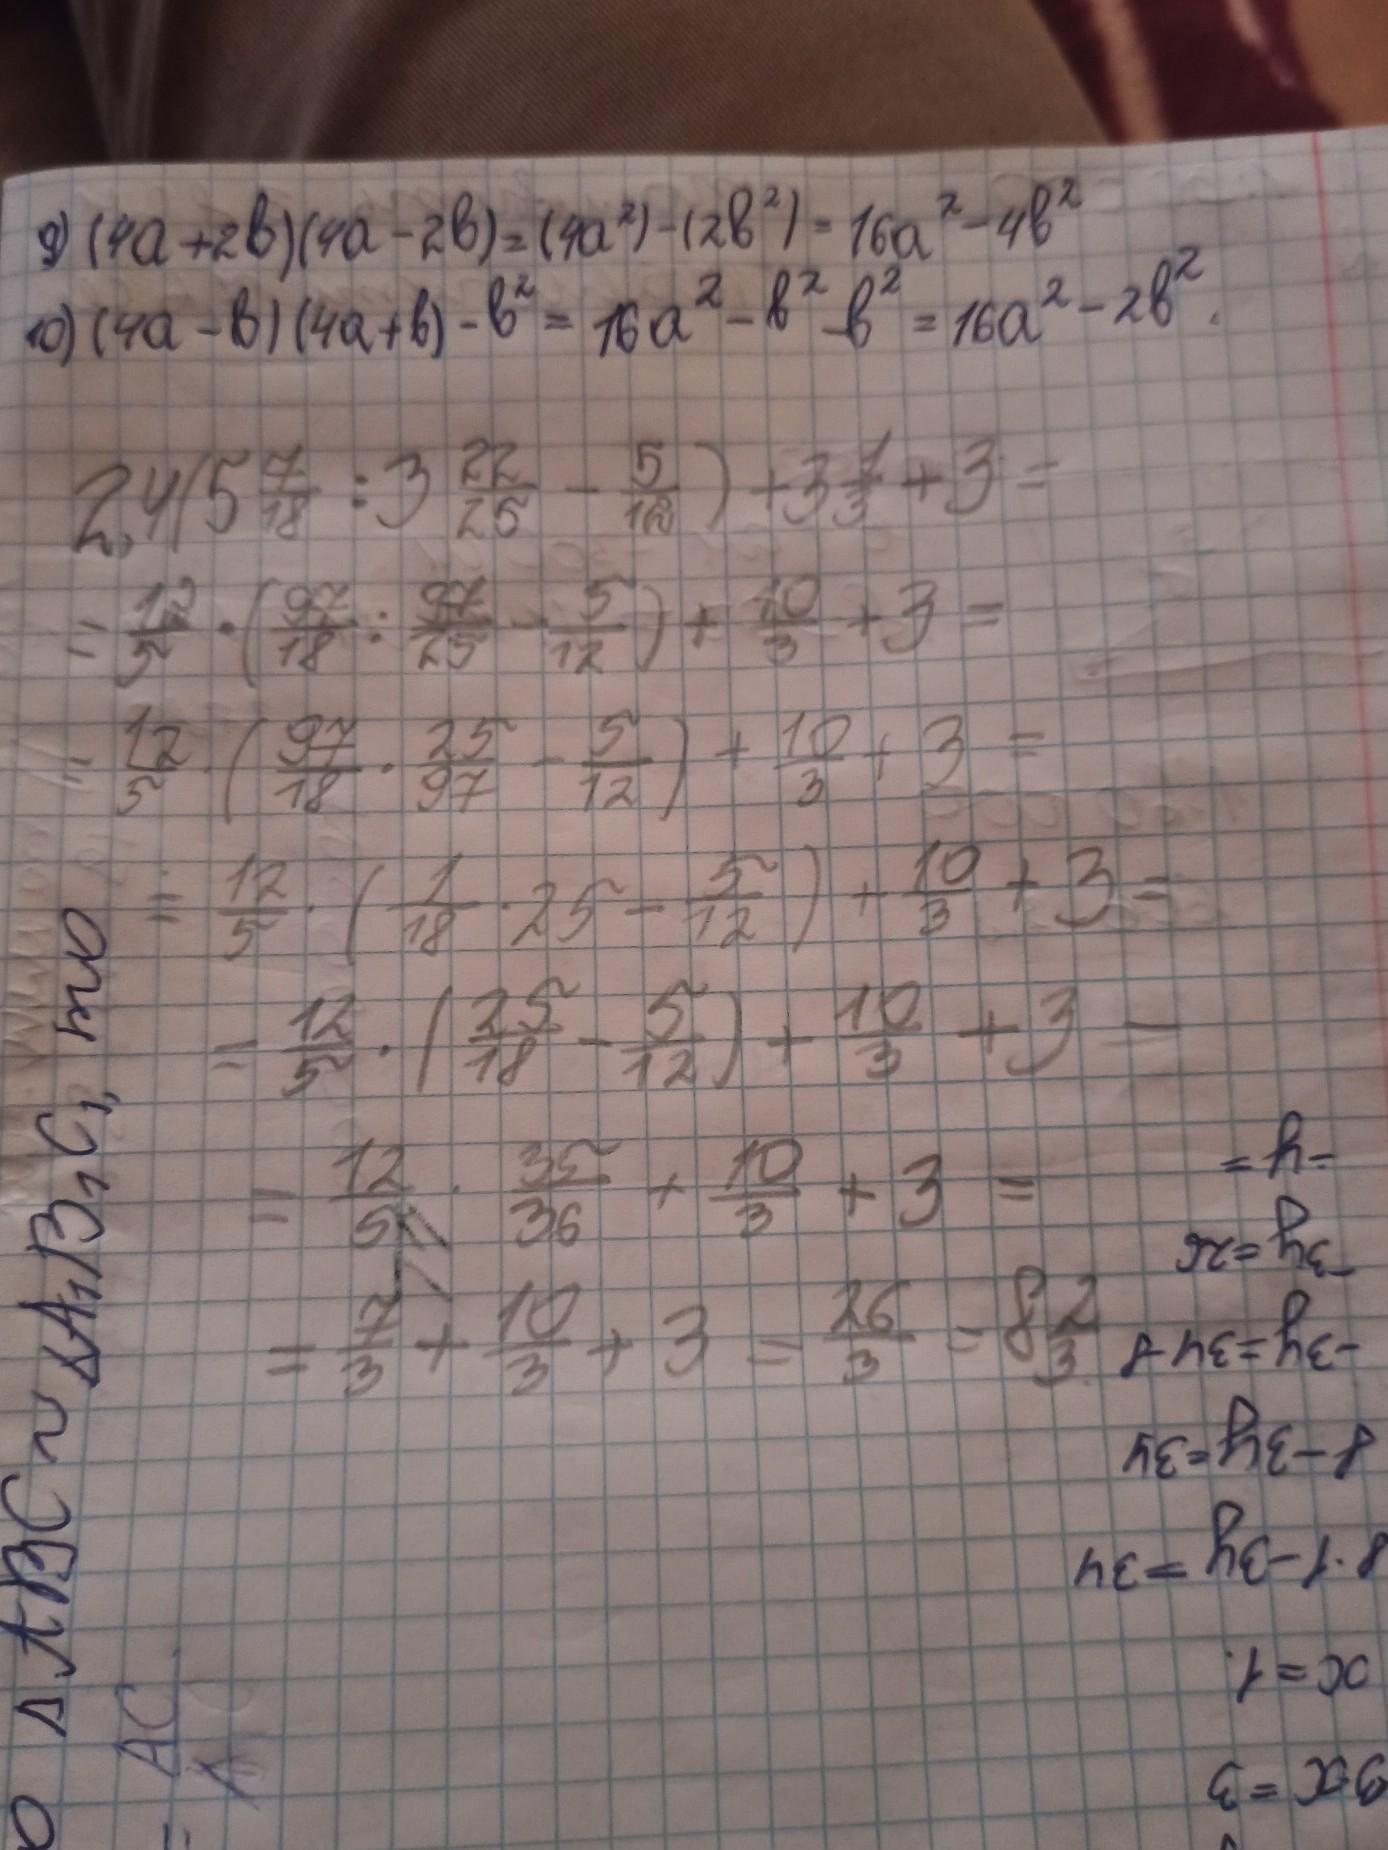 9) (4a+2b)(4a-2b)=(4a²)-(2b²)=16a²-4b²
10) (4a-b)(4a+b)-b²=16a²-b²-b²=16a²-2b².
2,4(5 7/18 : 3 22/25 - 5/12) + 3 1/3 + 3 =
= 12/5 · (97/18 : 97/25 - 5/12) + 10/3 + 3 =
= 12/5 · (97/18 · 25/97 - 5/12) + 10/3 + 3 =
= 12/5 · (1/18 · 25 - 5/12) + 10/3 + 3 =
= 12/5 · (25/18 - 5/12) + 10/3 + 3 =
= 12/5 · 35/36 + 10/3 + 3 =
= 7/3 + 10/3 + 3 = 26/3 = 8 2/3
ΔABC ~ ΔA₁B₁C₁, то
= AC
3x=3
x=1.
8·1-3y=34
8-3y=34
-3y=34-8
-3y=26
-y=